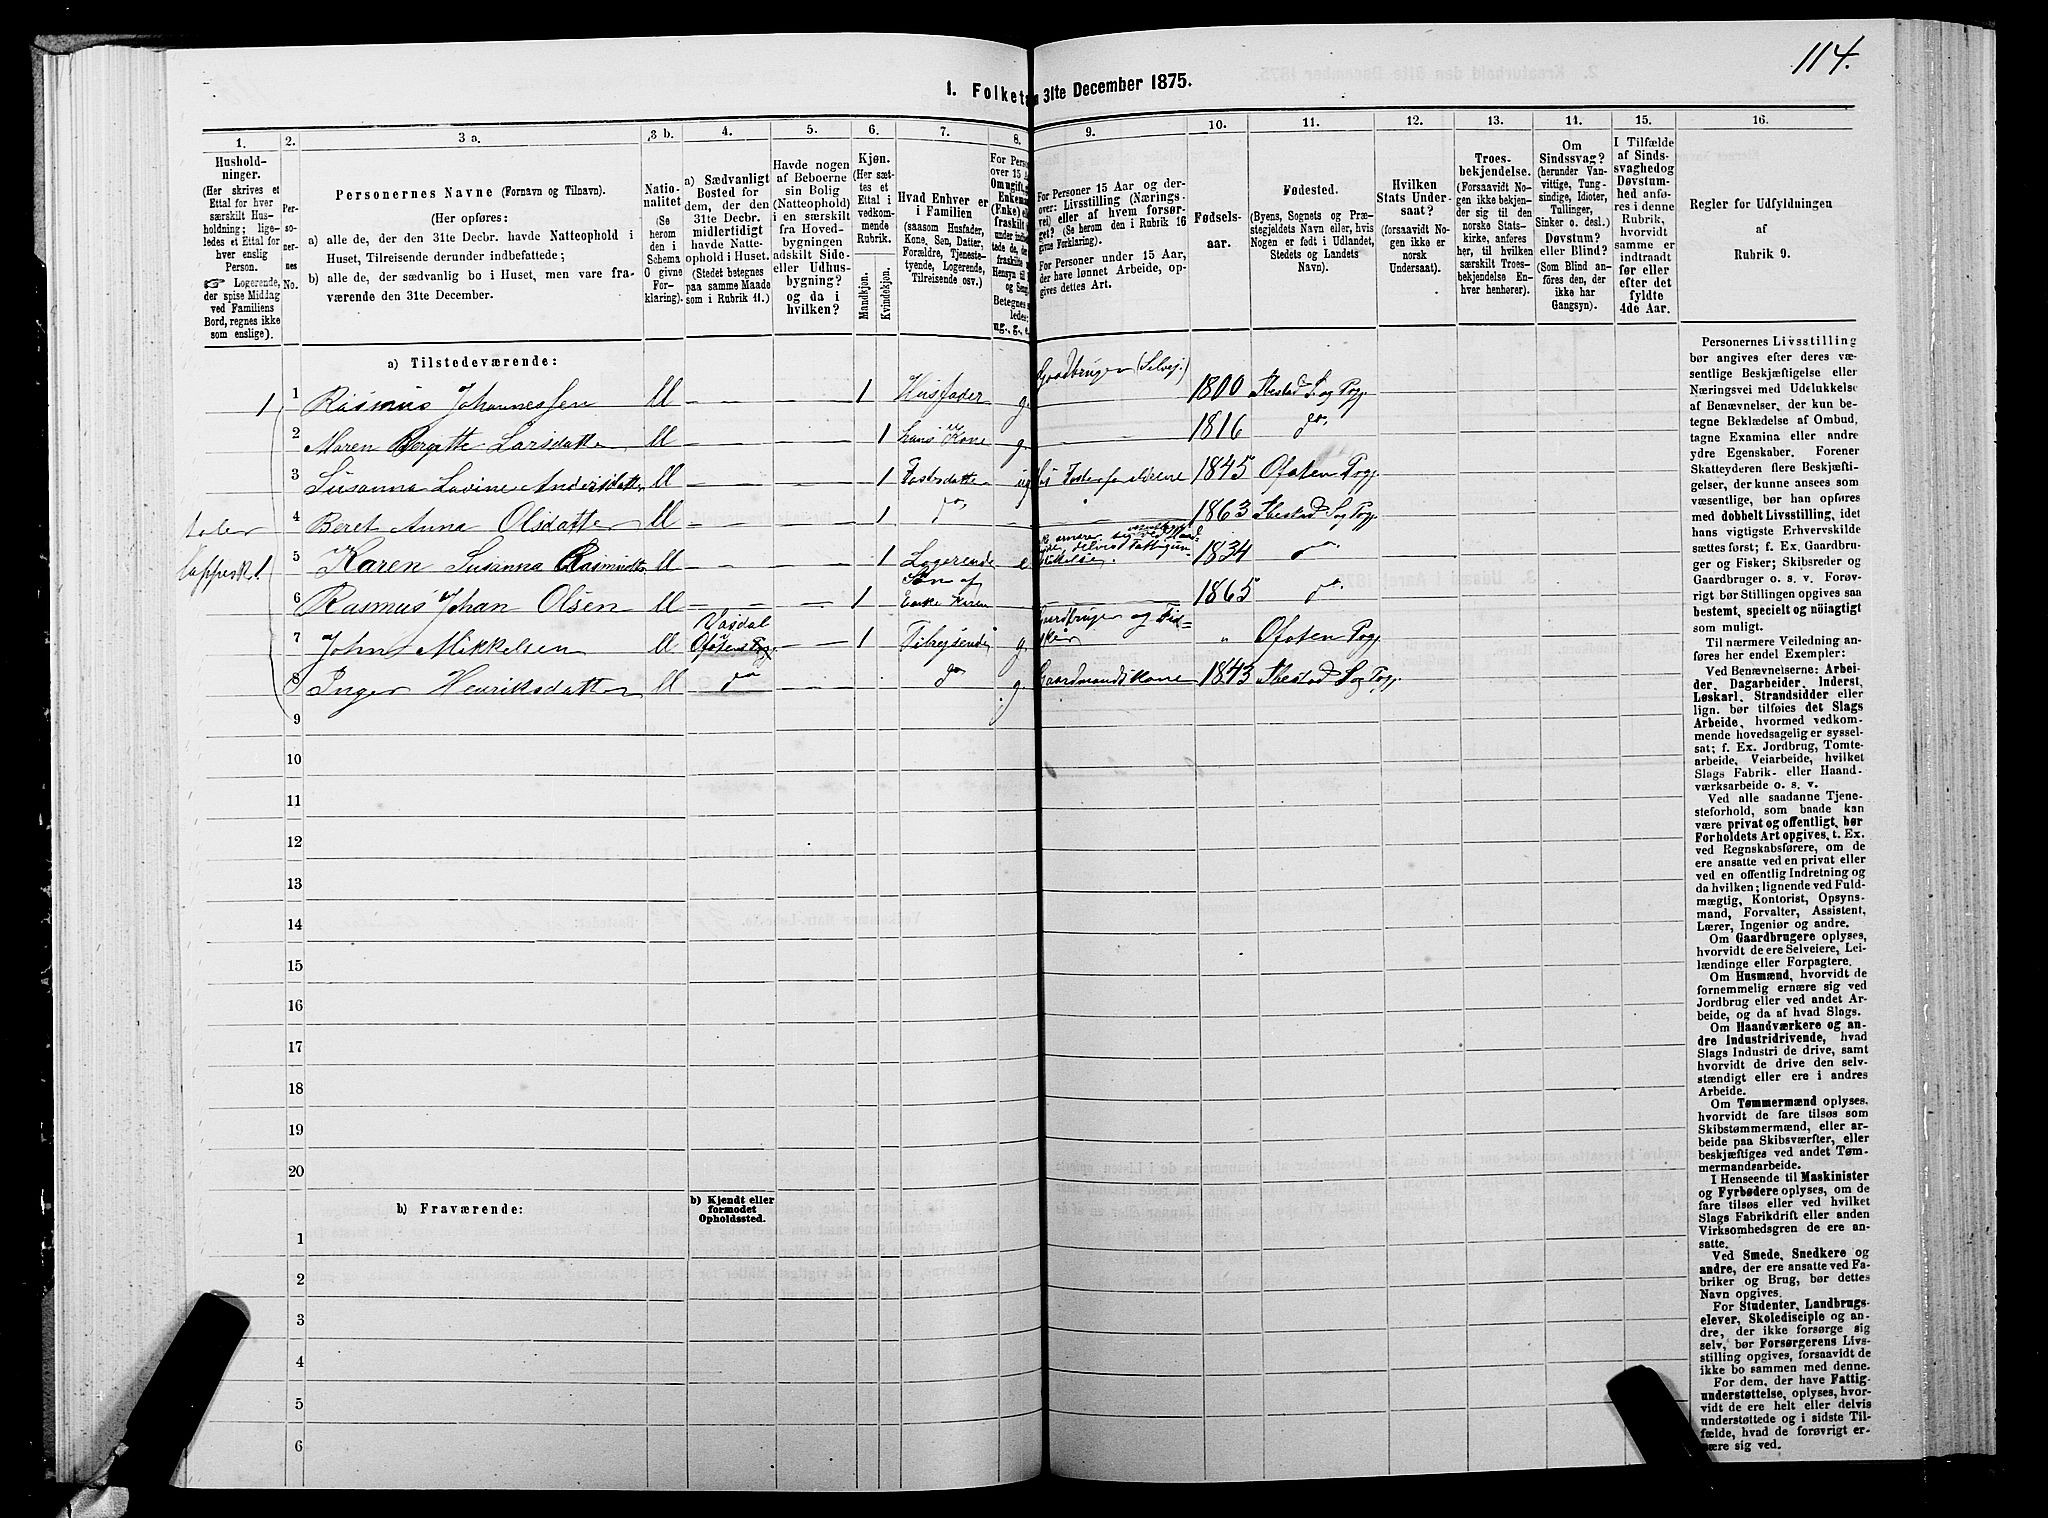 114.
1. Folketæ 31te December 1875.
1. 2. 3 a. 3 b. 4. 5. 6. 7. 8. 9. 10. 11. 12. 13. 14. 15. 16.
Hushold-
ninger.
(Her skrives et
Ettal for hver
særskilt Hus-
holdning; lige-
ledes et Ettal for
hver enslig
Person.
☞ Logerende,
der spise Middag
ved Familiens
Bord, regnes ikke
som enslige).
Per-
so-
ner-
nes
No.
Personernes Navne (Fornavn og Tilnavn).
(Her opføres:
a) alle de, der den 31te Decbr. havde Natteophold i
Huset, Tilreisende derunder indbefattede;
b) alle de, der sædvanlig bo i Huset, men vare fra-
værende den 31te December.
Natio-
nalitet
(Se
herom
den i
Schema
O givne
For-
klaring).
a) Sædvanligt
Bosted for
dem, der den
31te Decbr.
midlertidigt
havde Natte-
ophold i Huset.
(Stedet betegnes
paa samme Maade
som i Rubrik 11.)
Havde nogen
af Beboerne
sin Bolig
(Natteophold)
i en særskilt
fra Hoved-
bygningen
adskilt Side-
eller Udhus-
bygning?
og da i
hvilken?
Kjøn.
(Her sæt-
tes et
Ettal i
vedkom-
mende
Rubrik.
Mandkjøn.
Kvindekjøn.
Hvad Enhver er
i Familien
(saasom Husfader,
Kone, Søn, Datter,
Forældre, Tjeneste-
tyende, Logerende,
Tilreisende osv.)
For Person
over 15 Aar
Om ugift, g
Enkema
(Enke) el
fraskilt
under indb
tede de,
fraskilte
Hensyn til
og Seng.
Betegnes s
ledes:
ug., g., e.
For Personer 15 Aar og der-
over: Livsstilling (Nærings-
vei) eller af hvem forsør-
get? (Se herom den i Rubrik 16
givne Forklaring).
For Personer under 15 Aar,
der have lønnet Arbeide, op-
gives dettes Art.
Fødsels-
aar.
Fødested.
(Byens, Sognets og Præ-
stegjeldets Navn eller, hvis
Nogen er født i Udlandet,
Stedets og Landets
Navn).
Hvilken
Stats Under-
saat?
(forsaavidt No-
gen ikke er
norsk
Undersaat).
Troes-
bekjendelse.
(Forsaavidt No-
gen ikke bekjen-
der sig til den
norske Stats-
kirke, anføres
her, til hvilken
særskilt Troes-
bekjendelse En-
hver henhører).
Om
Sindssvag?
(herunder Van-
vittige, Tung-
sindige, Idioter,
Tullinger,
Sinker o. desl.).
Døvstum?
eller Blind?
(Som Blind an-
føres den, der
ikke har
Gangsyn).
I Tilfælde
af Sinds-
svaghed og
Døvstum-
hed anfø-
res i denne
Rubrik,
hvorvidt
samme er
indtraadt
før eller
efter det
fyldte
4de Aar.
Regler for Udfyldningen
af
Rubrik 9.
a) Tilstedeværende:
Gaardbruger (Selvej.)
1 1 Rasmus Johannessen M — — 1 Husfader g. 1800 Ibestad S. og Pgj.
2 Maren Bergitte Larsdatter M — — 1 hans Kone g. 1816 do.
3 Susanna Lovine Andersdatter M — — 1 Fosterdatter ug Fosterforældrene 1845 Ofoten Pgj.
4 Beret Anna Olsdatter M — — 1 do — 1863 Ibestad S og Pgj.
5 Karen Susanna Rasmusdtr M — — 1 Logerende e 1834 do.
6 Rasmus Johan Olsen M — — 1 Søn af Enke Karen — 1865 do.
Vasdal Gaardbruger og Fis-
7 John Mikkelsen M Ofotens Pgj. — 1 Tilreisende g. ker " Ofoten Pgj.
8 Inger Henriksdatter M do — do g. Gaardmands Kone 1843 Ibestad S og Pgj.
9
10
11
12
13
14
15
16
17
18
19
20
b) Fraværende:
b) Kjendt eller
formodet
Opholdssted.
1
2
3
4
5
6
Personernes Livsstilling
bør angives efter deres væ-
sentlige Beskjæftigelse eller
Næringsvei med Udelukkelse
af Benævnelser, der kun be-
tegne Beklædelse af Ombud,
tagne Examina eller andre
ydre Egenskaber. Forener
Skatteyderen flere Beskjæfti-
gelser, der kunne ansees som
væsentlige, bør han opføres
med dobbelt Livsstilling, idet
hans vigtigste Erhvervskilde
sættes først; f. Ex. Gaardbru-
ger og Fisker; Skibsreder og
Gaardbruger o. s. v. Forøv-
rigt bør Stillingen opgives saa
bestemt, specielt og nøiagtigt
som muligt.
Til nærmere Veiledning an-
føres her endel Exempler:
Ved Benævnelserne: Arbei-
der, Dagarbeider, Inderst,
Løskarl, Strandsidder eller
lign. bør tilføies det Slags
Arbeide, hvormed vedkom-
mende hovedsagelig er syssel-
sat; f. Ex. Jordbrug, Tomte-
arbeide, Veiarbeide, hvilket
Slags Fabrik- eller Haand-
værksarbeide o. s. v.
Ved alle saadanne Tjene-
steforhold, som baade kan
være privat og offentligt, bør
Forholdets Art opgives, t. Ex.
ved Regnskabsførere, om de
ere ansatte ved en privat eller
ved en offentlig Indretning og
da hvilken; lignende ved Fuld-
mægtig, Kontorist, Opsyns-
mand, Forvalter, Assistent,
Lærer, Ingeniør og andre.
Om Gaardbrugere oplyses,
hvorvidt de ere Selveiere, Lei-
lændinge eller Forpagtere.
Om Husmænd, hvorvidt de
fornemmelig ernære sig ved
Jordbrug eller ved andet Ar-
beide, og da af hvad Slags.
Om Haandværkere og an-
dre Industridrivende, hvad
Slags Industri de drive, samt
hvorvidt de drive den selv-
stændigt eller ere i andres
Arbeide.
Om Tømmermænd oplyses,
hvorvidt de fare tilsøs som
Skibstømmermænd, eller ar-
beide paa Skibsværfter, eller
beskjæftiges ved andet Tøm-
mermandsarbeide.
I Henseende til Maskinister
og Fyrbødere oplyses, om de
fare tilsøs eller ved hvilket
Slags Fabrikdrift eller anden
Virksomhedsgren de ere an-
satte.
Ved Smede, Snedkere og
andre, der ere ansatte ved Fa-
briker og Brug, bør dettes
Navn opgives.
For Studenter, Landbrugs-
elever, Skoledisciple og an-
dre, der ikke forsørge sig
selv, bør Forsørgerens Livs-
stilling opgives, forsaavidt de
ikke bo sammen med denne.
For dem, der have Fattig-
understøttelse, oplyses, hvor-
vidt de ere helt eller delvis
understøttede og i sidste Til-
fælde, hvad de forøvrigt er-
nære sig ved.